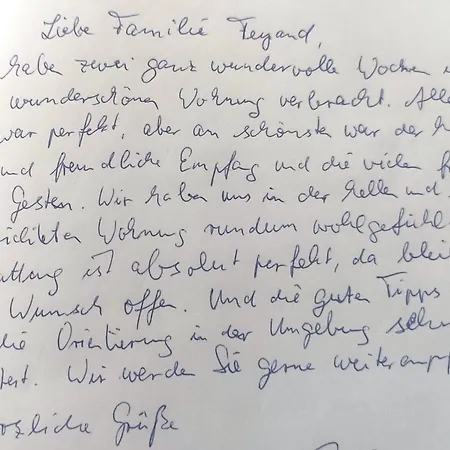 Liebe Familie Feyand,
habe zwei ganz wundervolle Wochen
wunderschönen Wohnung verbracht. Alle
war perfekt, aber am schönsten war der h
und freundliche Empfang und die vielen f
Gesten. Wir haben uns in der hellen und
ichteten Wohnung rundum wohlgefühl
attung ist absolut perfekt, da blei
Wunsch offen. Und die guten Tipps
die Orientierung in der Umgebung seh
tert. Wir werden Sie gerne weiteremp
rzliche Grüße